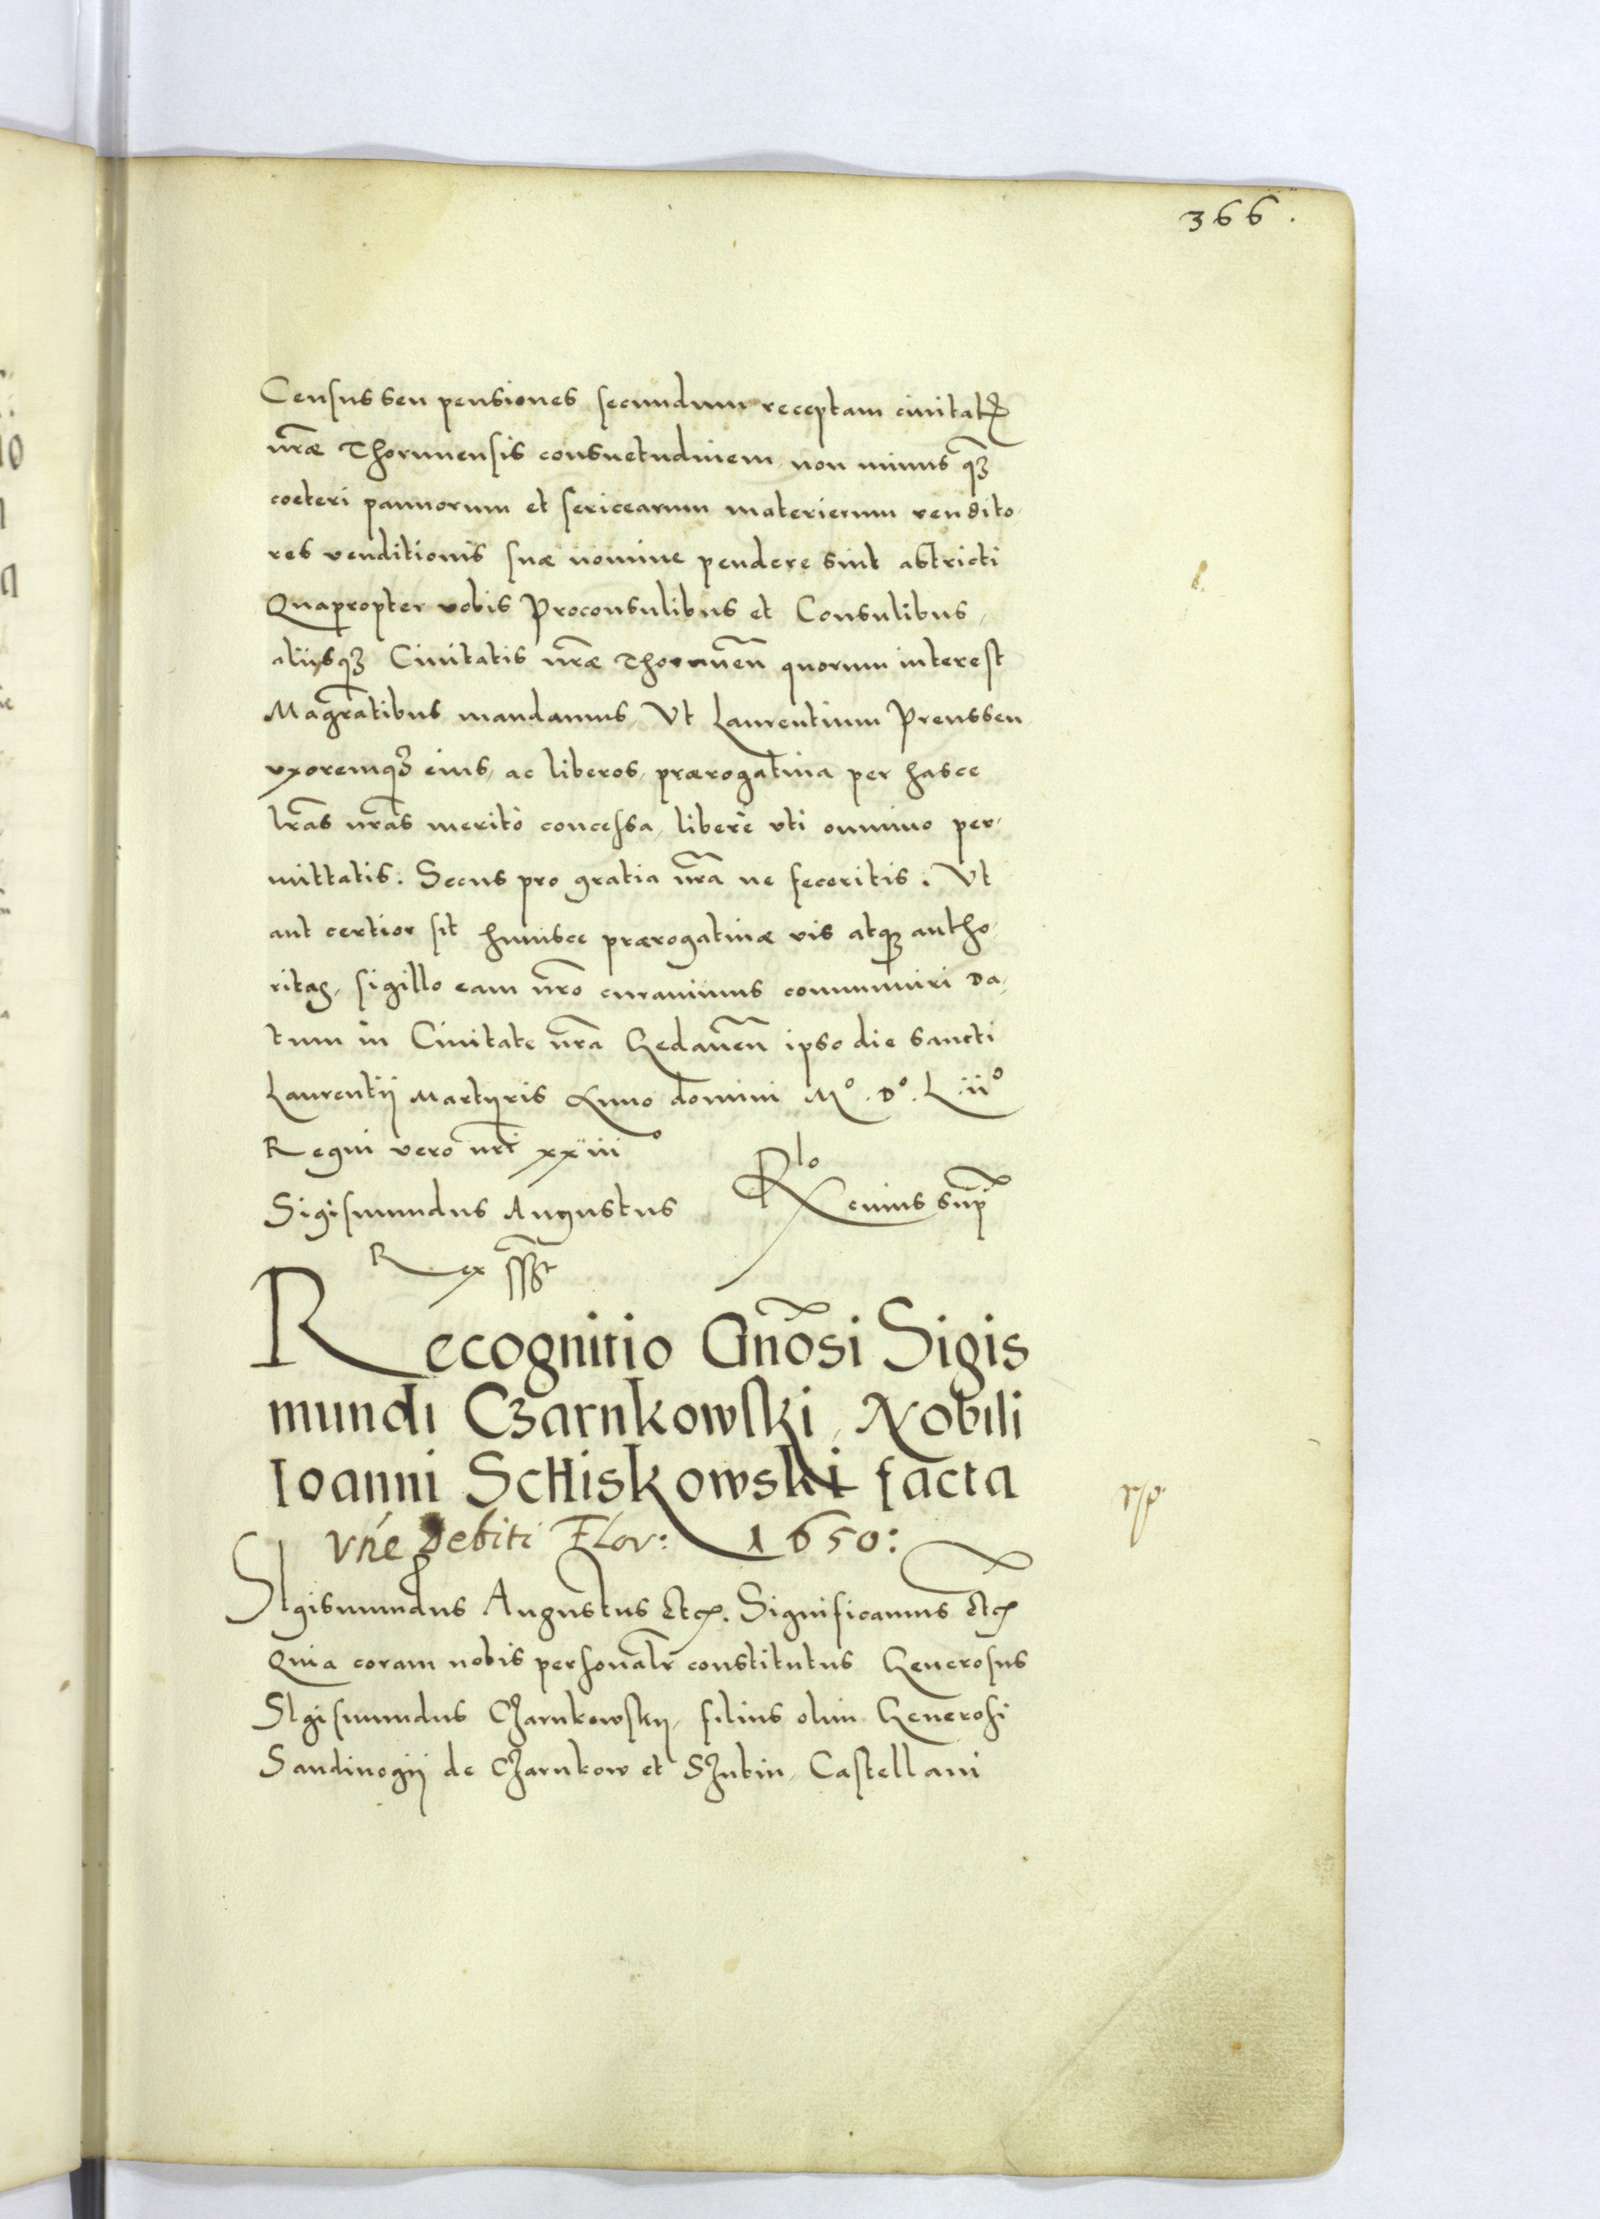 366.
Census seu pensiones secundum receptam civitatis
nrae Thorunensis consuetudinem non minus q3
coeteri pannorum et sericearum materierum vendito,
res venditionis suae nomine pendere sint astricti
Quapropter vobis Proconsulibus et Consulibus,
aliisq3 Civitatis nrae Thorunen quorum interest
Magratibus mandamus, Ut Laurentium Preussen
uxoremq3 eius, ac liberos, praerogativa per hasce
lras nras meritò concessa, liberè uti omnino per,
mittatis. Secus pro gratia nra ne feceritis. Ut
aut certior sit huiusce praerogativae vis atq3 autho,
ritas, sigillo eam nro curavimus communiri Da,
tum in Civitate nra Gedanen ipso die sancti
Laurentij Martyris Anno domini Mº. Dº. L iiº
Regni vero nri xxiiiº
Sigismundus Augustus
Rex sst
Recognitio Gnosi Sigis
mundi Czarnkowski, Nobili
Ioanni Schiskowski facta
Debiti Flor: 1650:
Sigismundus Augustus etc. Significamus etc
Quia coram nobis personalr constitutus Generosus
Sigismundus Czarnkowsky, filius olim Generosi
Sandivogij de Czarnkow et Szubin, Castellani